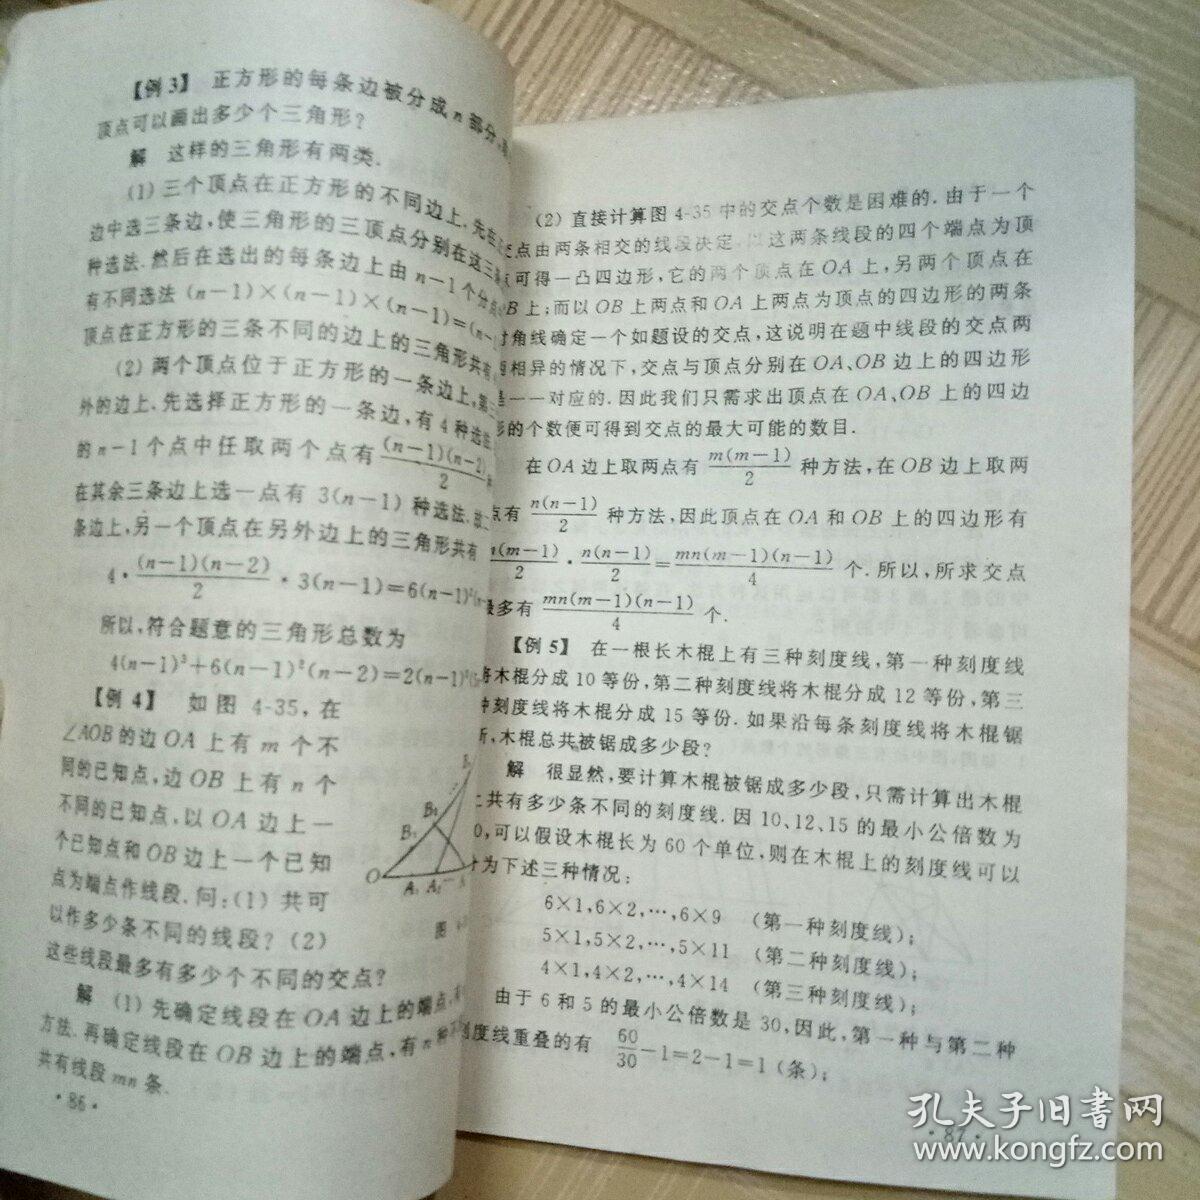 【例3】 正方形的每条边被分成n部分
顶点可以画出多少个三角形?
解 这样的三角形有两类.
(1)三个顶点在正方形的不同边上.先在
边中选三条边,使三角形的三顶点分别在这三条
种选法.然后在选出的每条边上由n-1个分点
有不同选法(n-1)×(n-1)×(n-1)=(n-
顶点在正方形的三条不同的边上的三角形共有
(2)两个顶点位于正方形的一条边上,第三
外的边上.先选择正方形的一条边,有4种选法
的n-1个点中任取两个点有(n-1)(n-2)/2
在其余三条边上选一点有3(n-1)种选法.故
条边上,另一个顶点在另外边上的三角形共有
4·(n-1)(n-2)/2·3(n-1)=6(n-1)²(n-
所以,符合题意的三角形总数为
4(n-1)³+6(n-1)²(n-2)=2(n-1)²(5
【例4】 如图4-35,在
∠AOB的边OA上有m个不
同的已知点,边OB上有n个
不同的已知点,以OA边上一
个已知点和OB边上一个已知
点为端点作线段.问:(1)共可
以作多少条不同的线段?(2)
这些线段最多有多少个不同的交点?
B
B₂
B₁
O
A₁ A₂
图
解 (1)先确定线段在OA边上的端点,有
方法.再确定线段在OB边上的端点,有n种
共有线段mn条.
·86·
(2)直接计算图4-35中的交点个数是困难的.由于一个
交点由两条相交的线段决定,以这两条线段的四个端点为顶
点可得一凸四边形,它的两个顶点在OA上,另两个顶点在
OB上;而以OB上两点和OA上两点为顶点的四边形的两条
对角线确定一个如题设的交点,这说明在题中线段的交点两
两相异的情况下,交点与顶点分别在OA、OB边上的四边形
是一一对应的.因此我们只需求出顶点在OA、OB上的四边
形的个数便可得到交点的最大可能的数目.
在OA边上取两点有m(m-1)/2种方法,在OB边上取两
点有n(n-1)/2种方法,因此顶点在OA和OB上的四边形有
m(m-1)/2·n(n-1)/2=mn(m-1)(n-1)/4个.所以,所求交点
最多有mn(m-1)(n-1)/4个.
【例5】 在一根长木棍上有三种刻度线,第一种刻度线
将木棍分成10等份,第二种刻度线将木棍分成12等份,第三
种刻度线将木棍分成15等份.如果沿每条刻度线将木棍锯
断,木棍总共被锯成多少段?
解 很显然,要计算木棍被锯成多少段,只需计算出木棍
上共有多少条不同的刻度线.因10、12、15的最小公倍数为
60,可以假设木棍长为60个单位,则在木棍上的刻度线可以
分为下述三种情况:
6×1,6×2,…,6×9 (第一种刻度线);
5×1,5×2,…,5×11 (第二种刻度线);
4×1,4×2,…,4×14 (第三种刻度线);
由于6和5的最小公倍数是30,因此,第一种与第二种
刻度线重叠的有 60/30-1=2-1=1(条);
·87·
孔夫子旧书网
www.kongfz.com